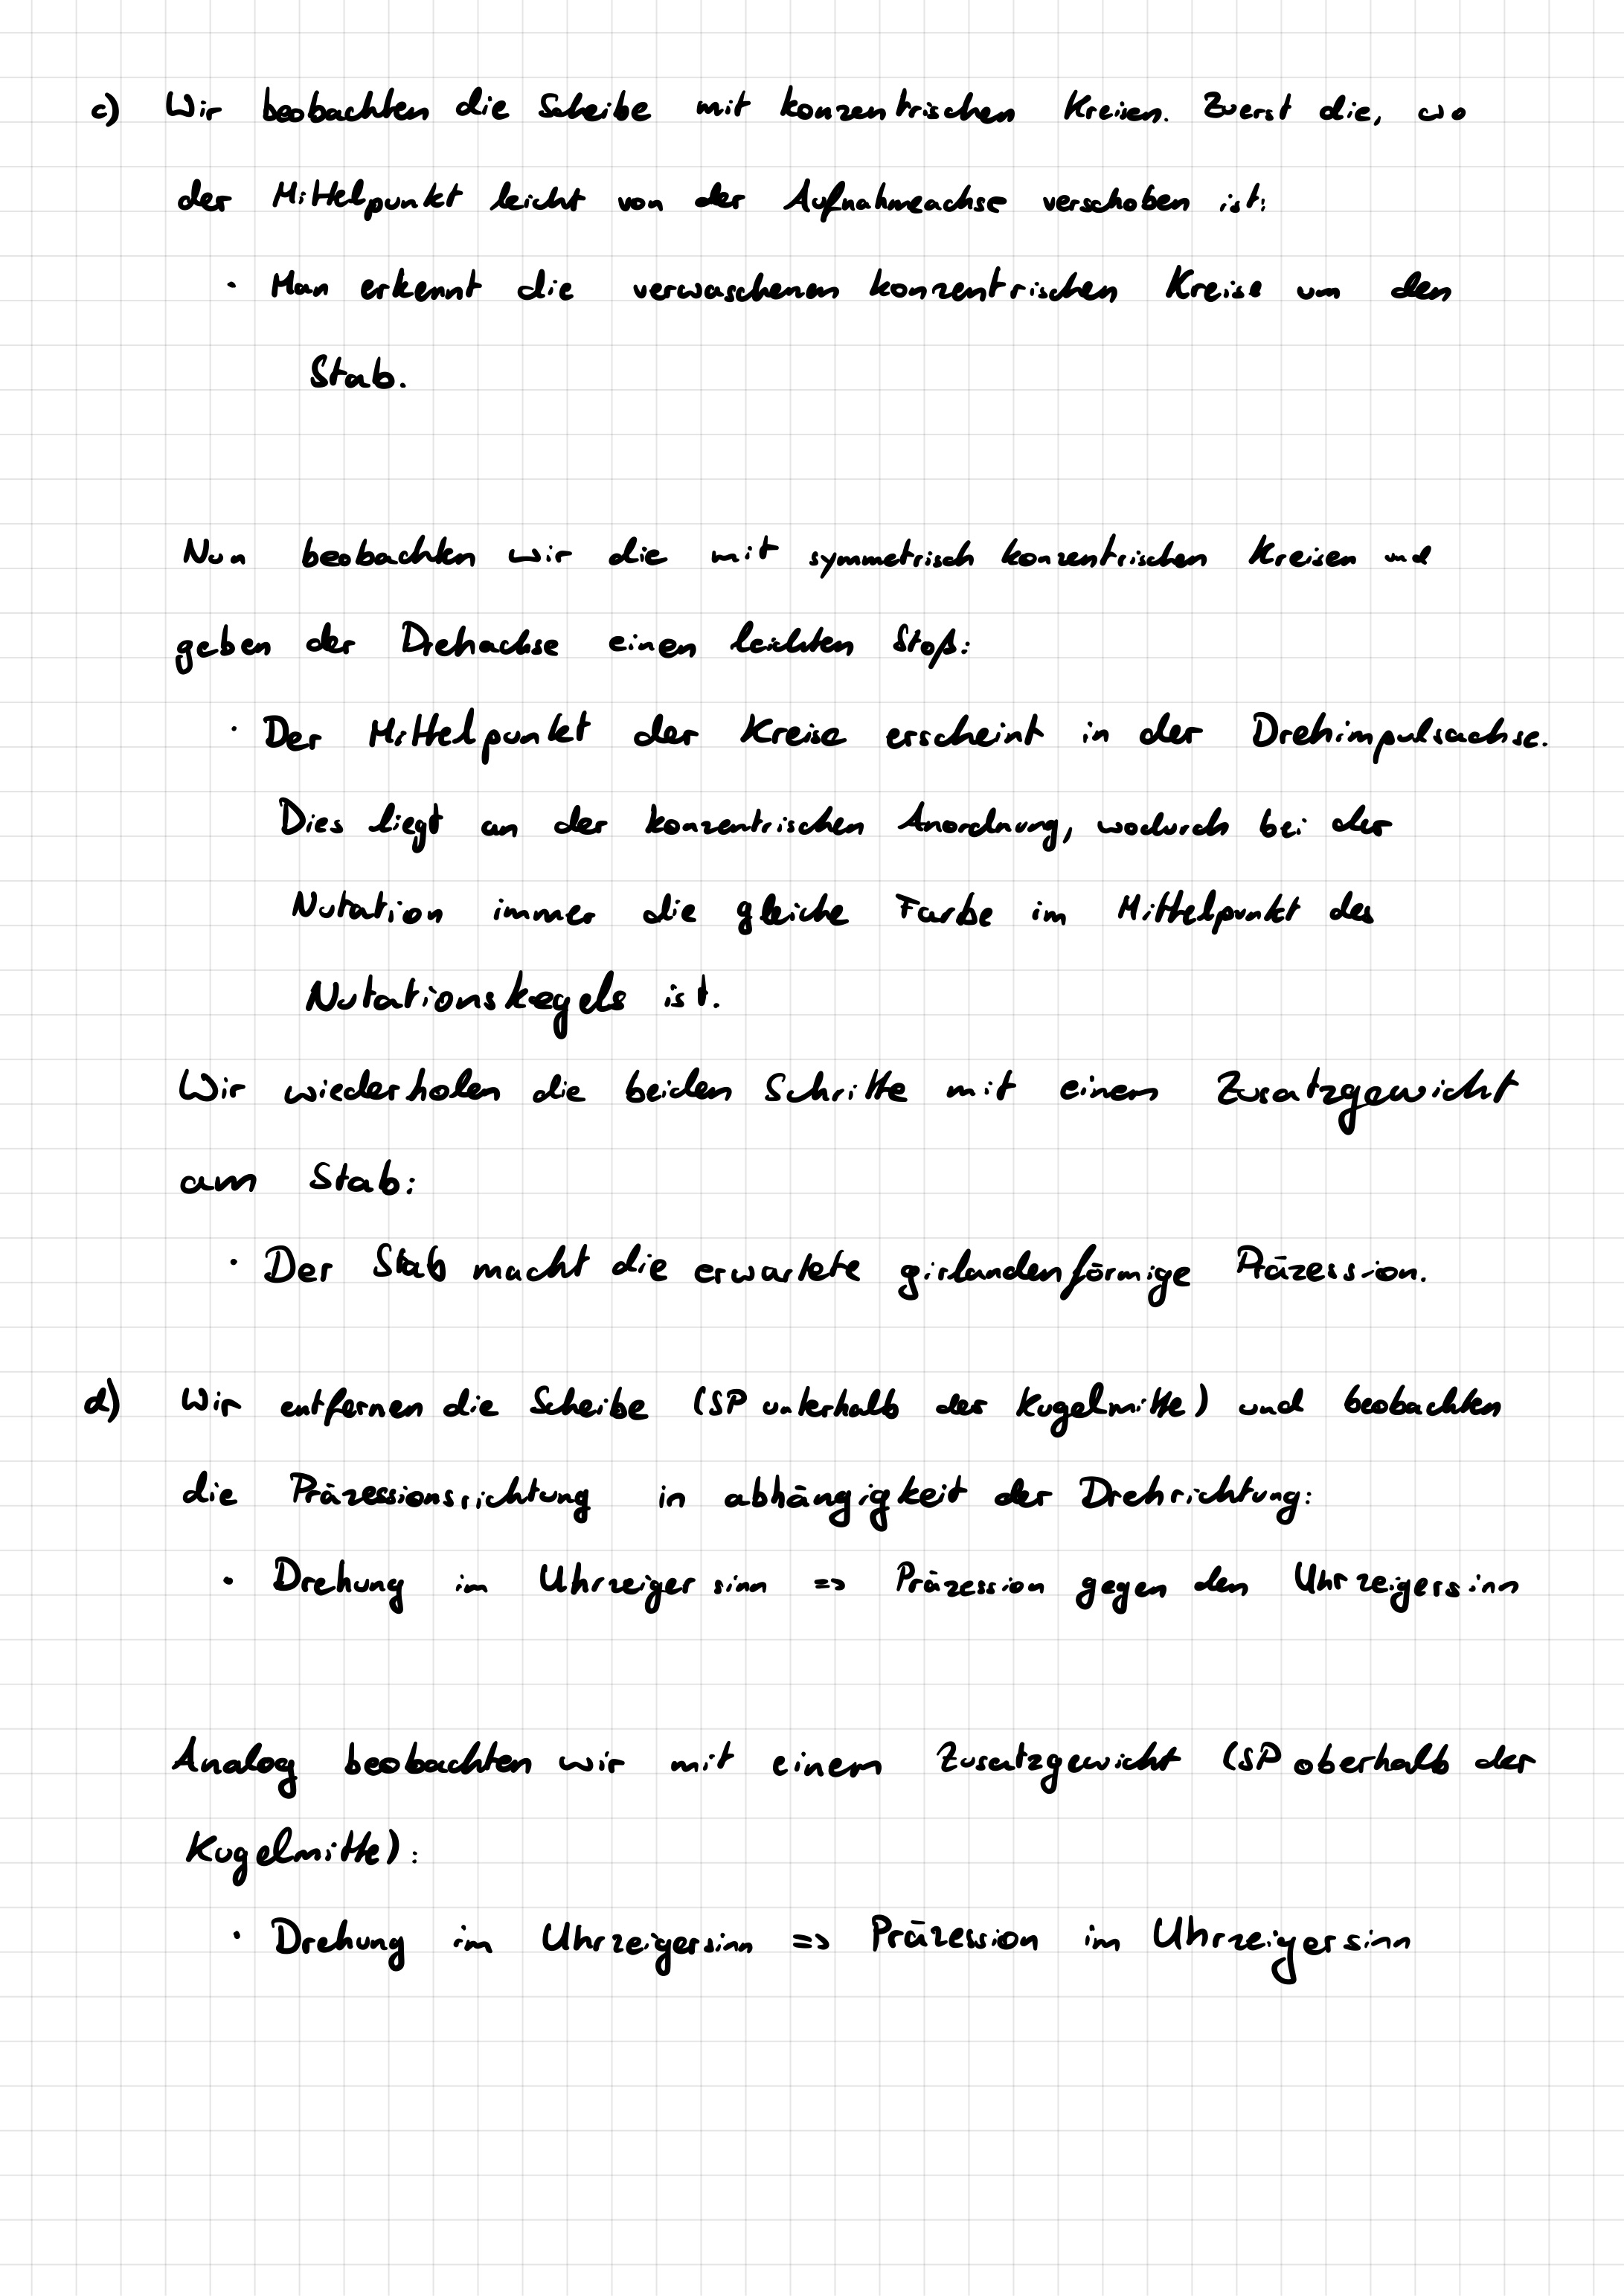 c) Wir beobachten die Scheibe mit konzentrischen Kreisen. Zuerst die, wo
der Mittelpunkt leicht von der Aufnahmeachse verschoben ist:
· Man erkennt die verwaschenen konzentrischen Kreise um den
Stab.
Nun beobachten wir die mit symmetrisch konzentrischen Kreisen und
geben der Drehachse einen leichten Stoß:
· Der Mittelpunkt der Kreise erscheint in der Drehimpulsachse.
Dies liegt an der konzentrischen Anordnung, wodurch bei der
Nutation immer die gleiche Farbe im Mittelpunkt des
Nutationskegels ist.
Wir wiederholen die beiden Schritte mit einem Zusatzgewicht
am Stab:
· Der Stab macht die erwartete girlandenförmige Präzession.
d) Wir entfernen die Scheibe (SP unterhalb der Kugelmitte) und beobachten
die Präzessionsrichtung in abhängigkeit der Drehrichtung:
· Drehung im Uhrzeigersinn => Präzession gegen den Uhrzeigersinn
Analog beobachten wir mit einem Zusatzgewicht (SP oberhalb der
Kugelmitte):
· Drehung im Uhrzeigersinn => Präzession im Uhrzeigersinn